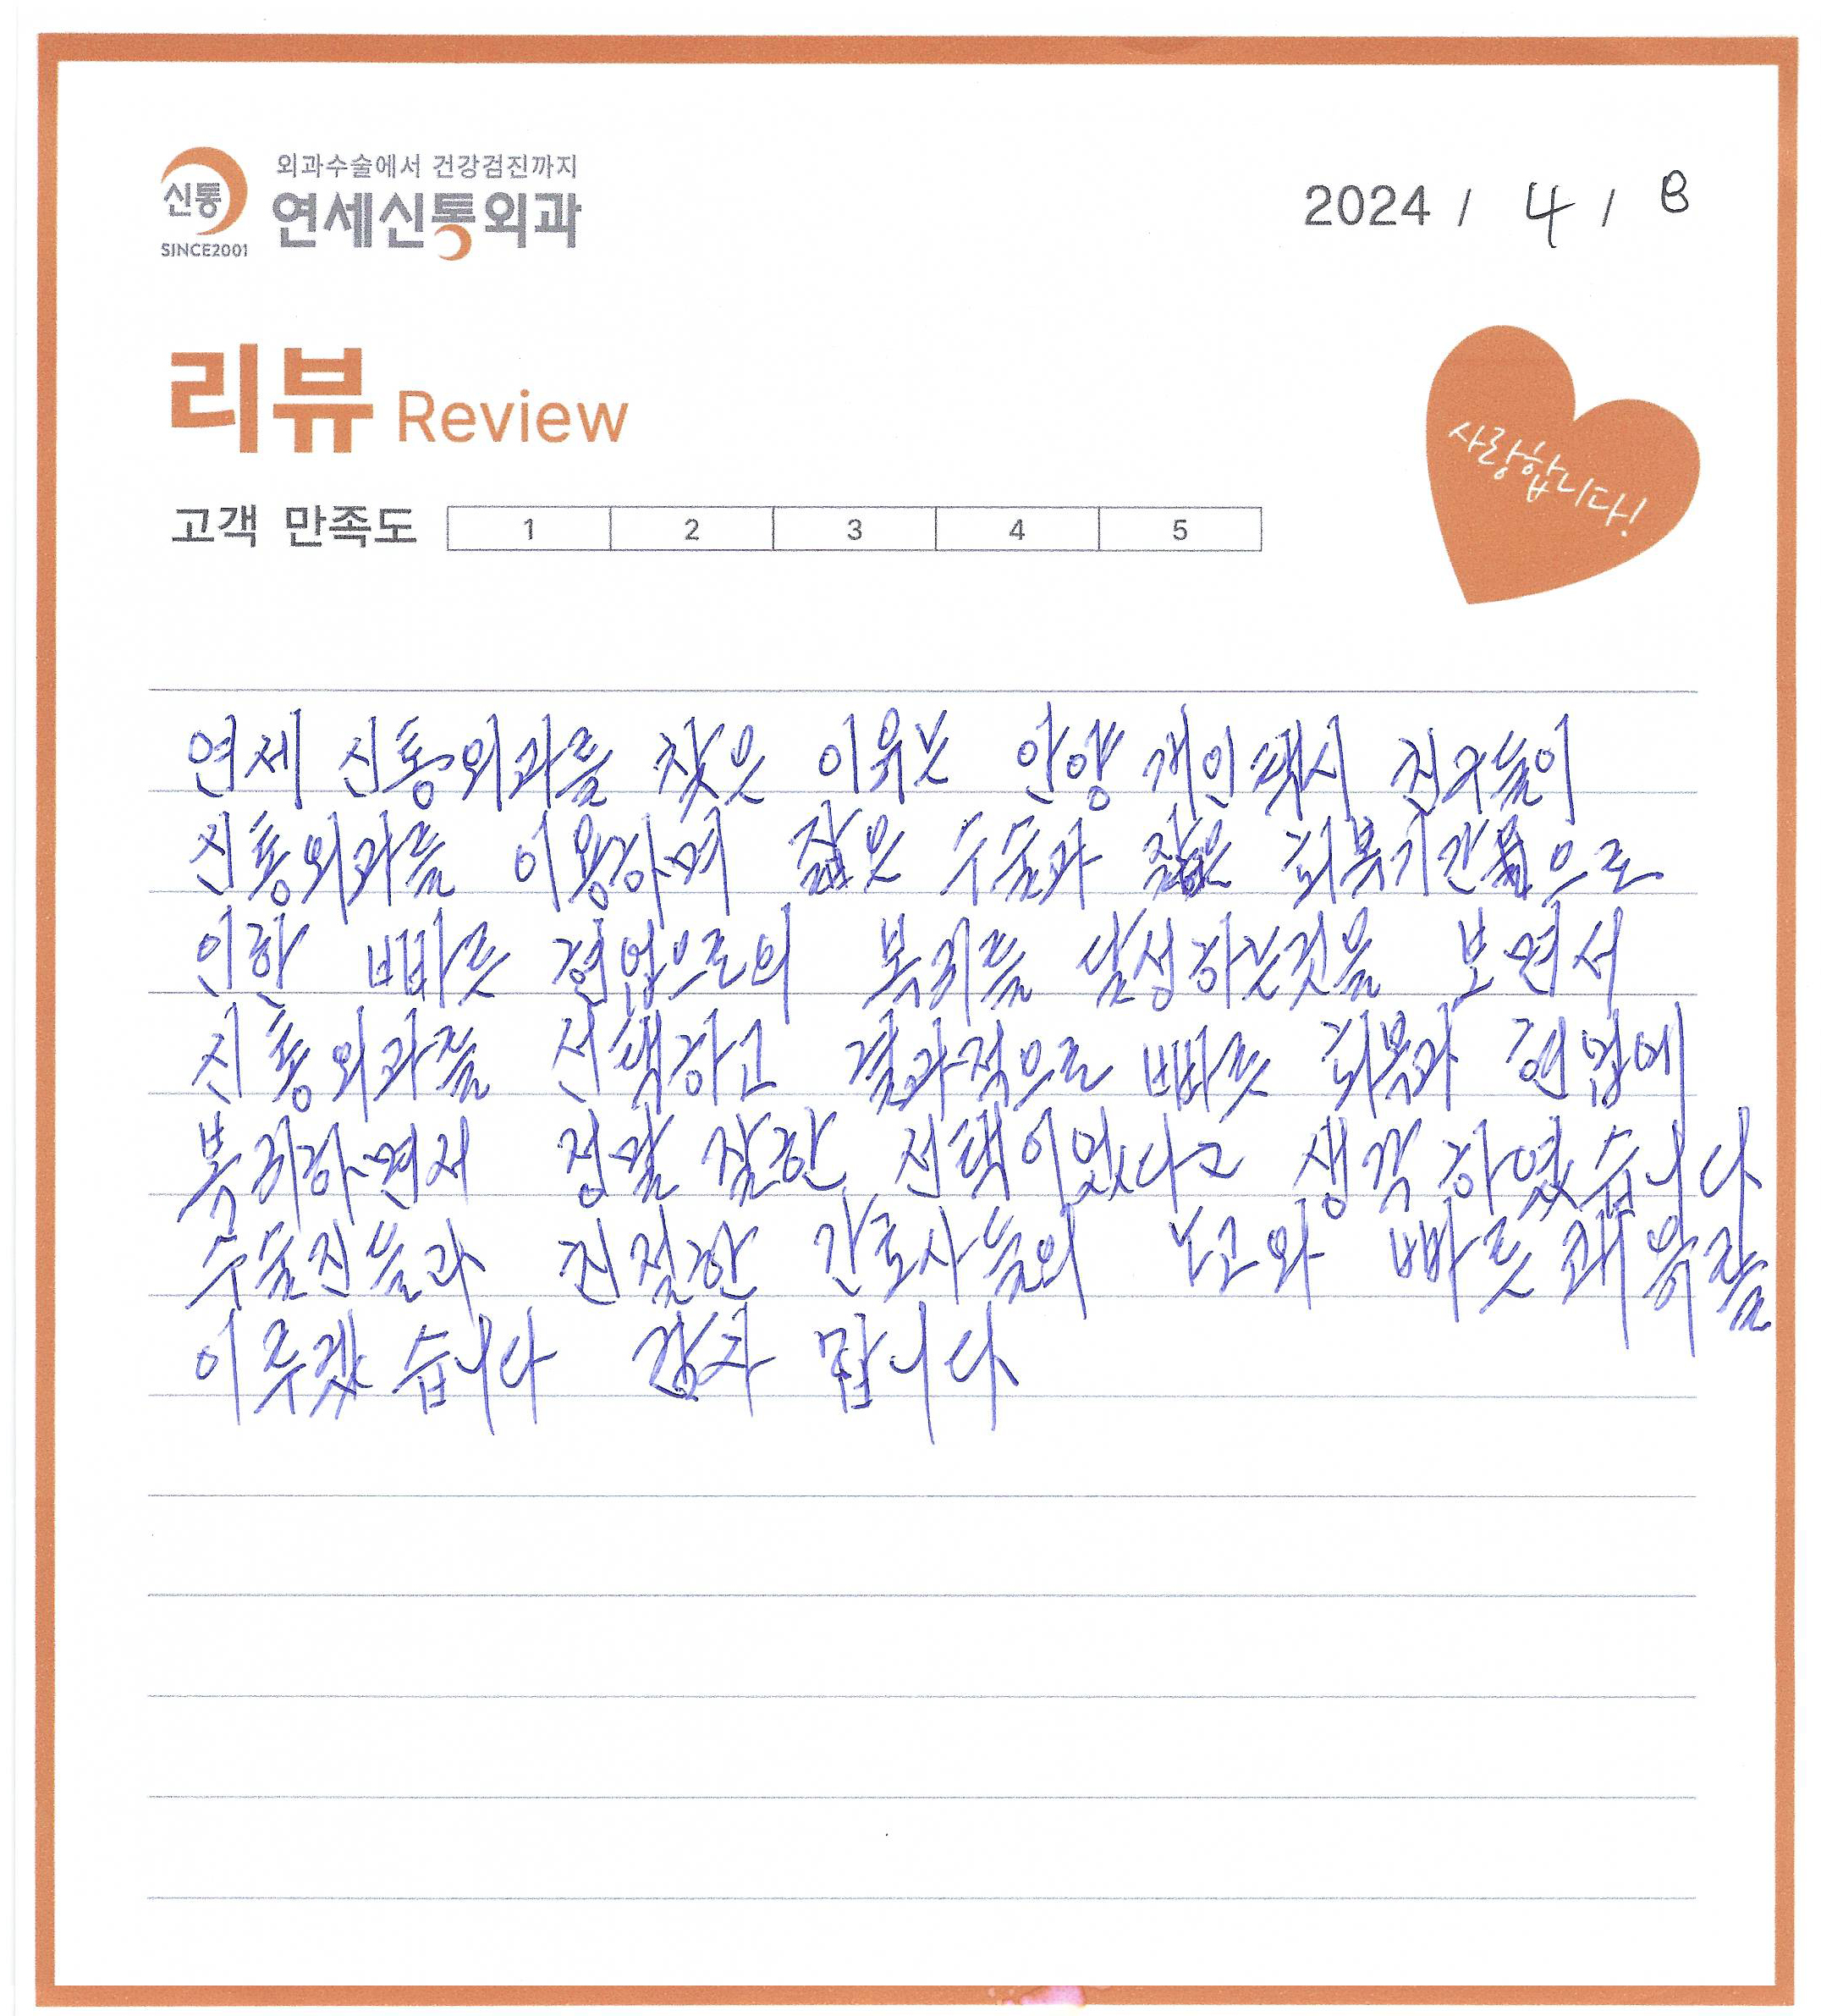 신통
SINCE2001
외과수술에서 건강검진까지
연세신통외과
2024 / 4 / 8
리뷰 Review
고객 만족도 1 2 3 4 5
사랑합니다!
연세 신통외과를 찾은 이유는 안양 개인택시 친구들이
신통외과를 이용하며 짧은 수술과 짧은 회복기간으로
인한 빠른 현업으로의 복귀를 달성하는것을 보면서
신통외과를 선택하고 결과적으로 빠른 회복과 현업에
복귀하면서 정말 잘한 선택이었다고 생각 하였습니다
수술진들과 친절한 간호사들의 노고와 빠른 쾌유를
이루겠습니다 감사 합니다